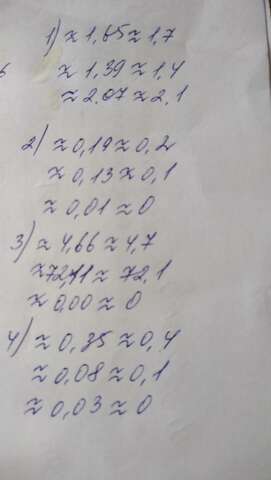 1) ≈ 1,65 ≈ 1,7
≈ 1,39 ≈ 1,4
≈ 2.07 ≈ 2,1
2) ≈ 0,19 ≈ 0,2
≈ 0,13 ≈ 0,1
≈ 0,01 ≈ 0
3) ≈ 4,66 ≈ 4,7
≈ 72,11 ≈ 72,1
≈ 0,00 ≈ 0
4) ≈ 0,35 ≈ 0,4
≈ 0,08 ≈ 0,1
≈ 0,03 ≈ 0